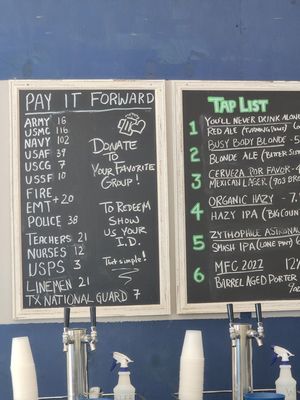 PAY IT FORWARD
ARMY 16
USMC 116
NAVY 102
USAF 39
USCG 7
USSF 10
FIRE
EMT +20
POLICE 38
TEACHERS 21
NURSES 12
USPS 3
LINEMEN 21
TX NATIONAL GUARD 7
DONATE
TO
YOUR FAVORITE
GROUP!
TO REDEEM
SHOW
US YOUR
I.D.
THAT SIMPLE!
TAP LIST
1 YOU'LL NEVER DRINK ALONE
RED ALE
2 BUSY BODY BLONDE - 5
BLONDE ALE
3 CERVEZA POR FAVOR - 4
MEXICAN LAGER (903
4 ORGANIC HAZY - 7.
HAZY IPA
5 ZYTHOPHILE ASTRONA
SMASH IPA
6 MFC 2022 12
BARREL AGED PORTER